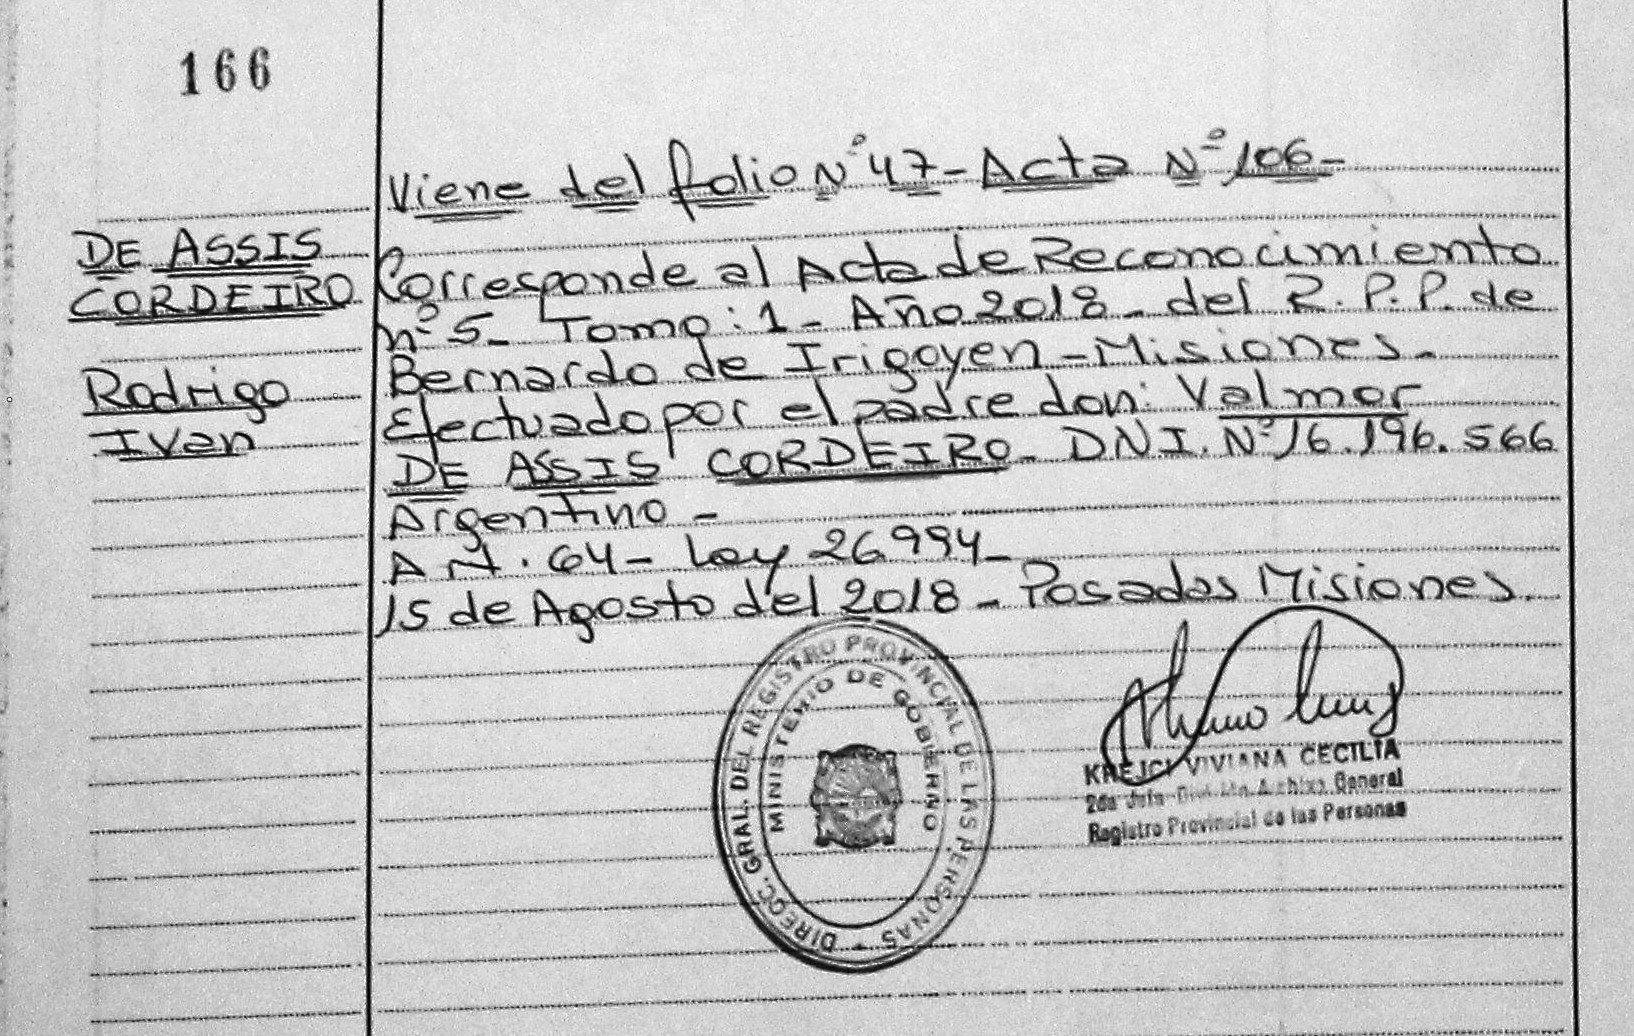 166
Viene del folio Nº 47 - Acta Nº 106 -
DE ASSIS
CORDEIRO
Rodrigo
Ivan
Corresponde al Acta de Reconocimiento
nº 5 - Tomo: 1 - Año 2018 - del R.P.P. de
Bernardo de Irigoyen - Misiones -
Efectuado por el padre don: Valmor
DE ASSIS CORDEIRO - DNI. Nº 16.196.566
Argentino -
Art. 64 - Ley 26994 -
15 de Agosto del 2018 - Posadas Misiones.
DIRECC. GRAL. DEL REGISTRO PROVINCIAL DE LAS PERSONAS
MINISTERIO DE GOBIERNO
KREJCI VIVIANA CECILIA
2da Archivo General
Registro Provincial de las Personas